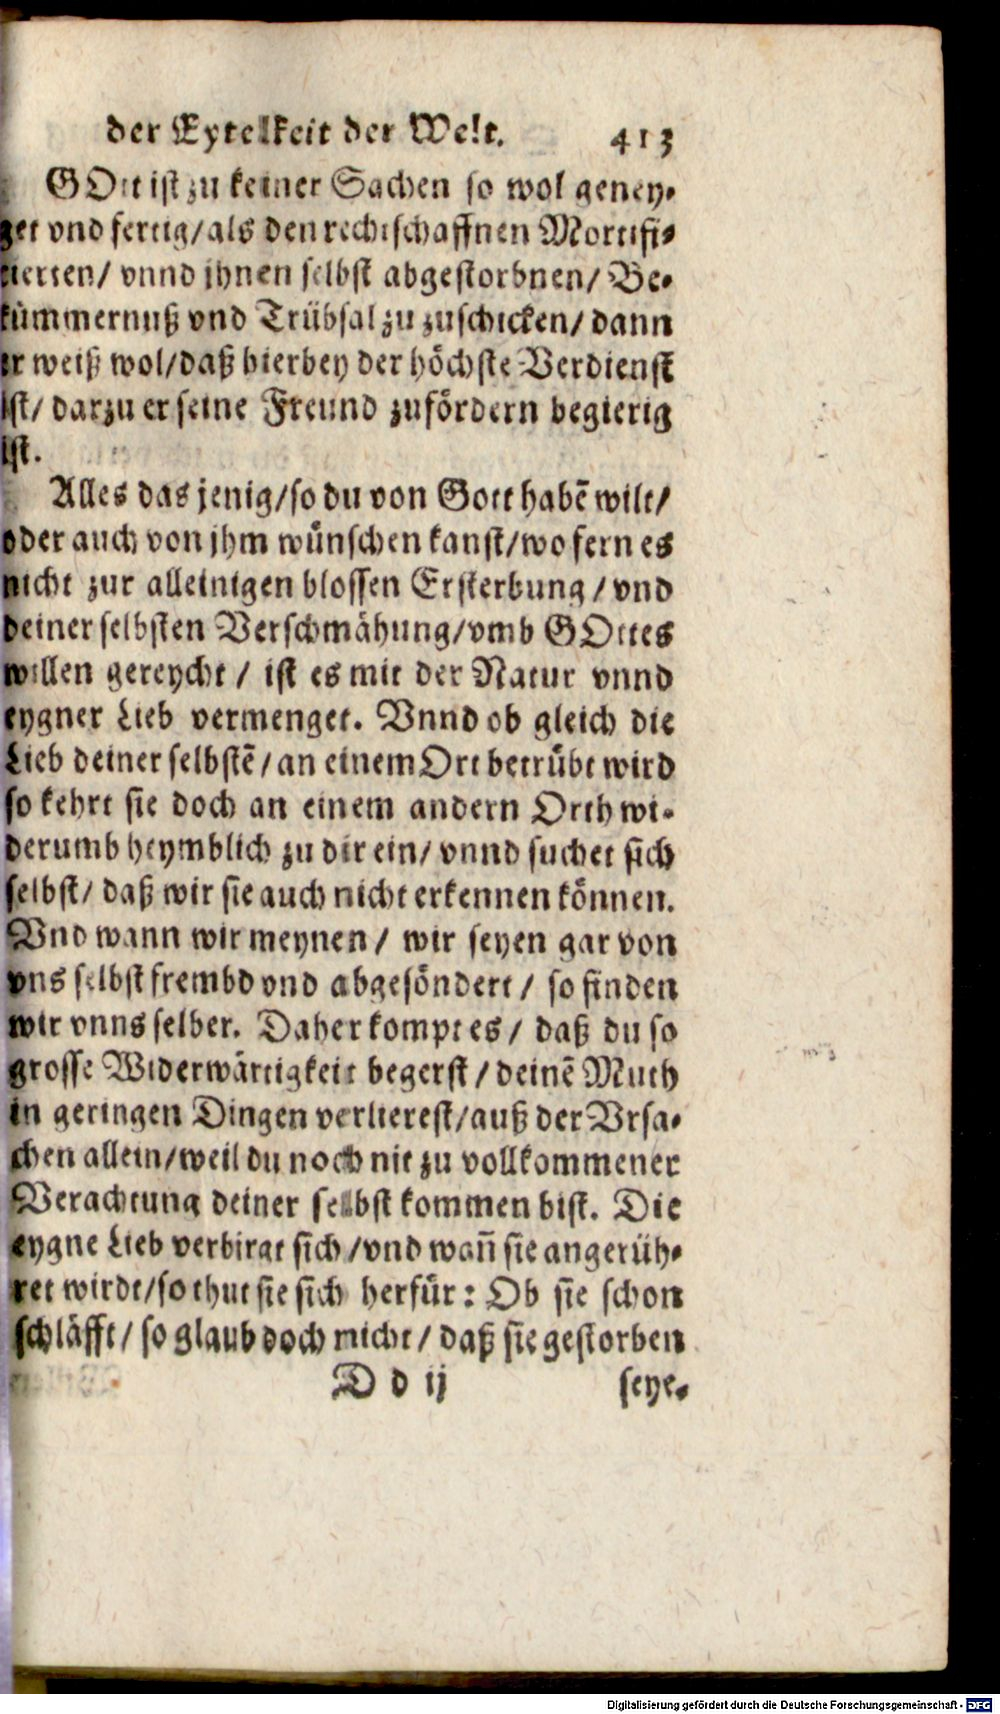 der Eytelkeit der Welt. 413
GOtt ist zu keiner Sachen so wol geney-
get vnd fertig/als den rechtschaffnen Mortifi-
cierten/ vnnd jhnen selbst abgestorbnen/ Be-
kümmernuß vnd Trübsal zu zuschicken/ dann
er weiß wol/daß hierbey der höchste Verdienst
ist/ darzu er seine Freund zufördern begierig
ist.
Alles das jenig/so du von Gott habē wilt/
oder auch von jhm wünschen kanst/wo fern es
nicht zur alleinigen blossen Ersterbung/vnd
deiner selbsten Verschmähung/vmb GOttes
willen gereycht/ ist es mit der Natur vnnd
eygner Lieb vermenget. Vnnd ob gleich die
Lieb deiner selbstē/an einem Ort betrübt wird
so kehrt sie doch an einem andern Orth wi-
derumb heymblich zu dir ein/ vnnd suchet sich
selbst/ daß wir sie auch nicht erkennen können.
Vnd wann wir meynen/ wir seyen gar von
vns selbst frembd vnd abgesöndert/ so finden
wir vnns selber. Daher kompt es/ daß du so
grosse Widerwärtigkeit begerst/deinē Muth
in geringen Dingen verlierest/auß der Vrsa-
chen allein/weil du noch nit zu vollkommener
Verachtung deiner selbst kommen bist. Die
eygne Lieb verbirgt sich/vnd wañ sie angerüh-
ret wirdt/so thut sie sich herfür: Ob sie schon
schläfft/ so glaub doch nicht/ daß sie gestorben
D d ij seye-
Digitalisierung gefördert durch die Deutsche Forschungsgemeinschaft - DFG